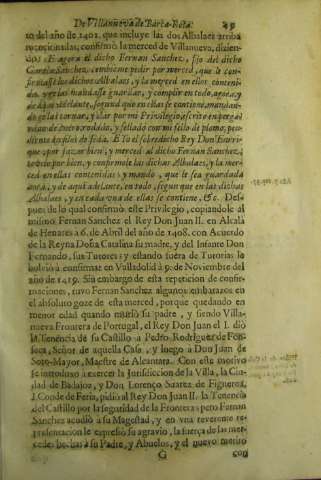 De Villanueva de Barca-Rota.
ro del año de 1402. que incluye las dos Albalaes arriba
mencionadas, confirmò la merced de Villanueva, dizien-
do: E agora el dicho Fernan Sanchez, fijo del dicho
Garcia Sanchez, embiome pedir por merced, que le con-
firmasse los dichos Albalaes, y la merced en ellos conteni-
da, y ge las mandasse guardar, y complir en todo, agora, y
de aqui adelante, segund que en ellas se contiene, mandan-
doge las tornar, y dar por mi Privilegio, escrito en perga-
mino de cuero, rodado, y sellado con mi sello de plomo, pen-
diente en filos de seda. E Yo el sobredicho Rey Don Enrri-
que, por fazer bien, y merced al dicho Fernan Sanchez,
tovelo por bien, y confirmole las dichas Albalaes, y la mer-
ced en ellas contenidas: y mando, que le sea guardada
aora, y de aqui adelante, en todo, segun que en las dichas
Albalaes, y en cada una de ellas se contiene, &c. Des-
pues de lo qual confirmò este Privilegio, copiandole al
mismo Fernan Sanchez el Rey Don Juan II. en Alcalà
de Henares à 6. de Abril del año de 1408. con Acuerdo
de la Reyna Doña Catalina su madre, y del Infante Don
Fernando, sus Tutores: y estando fuera de Tutorias lo
bolviò à confirmar en Valladolid à 9. de Noviembre del
año de 1419. Sin embargo de esta repeticion de confir-
maciones, tuvo Fernan Sanchez algunos embarazos en
el absoluto goze de esta merced, porque quedando en
menor edad quando muriò su padre, y siendo Villa-
nueva Frontera de Portugal, el Rey Don Juan el I. diò
la Tenencia de su Castillo à Pedro Rodriguez de Fon-
seca, Señor de aquella Casa, y luego à Don Juan de
Soto-Mayor, Maestre de Alcantara. Con este motivo
se introduxo à exercer la Jurisdiccion de la Villa, la Ciu-
dad de Badajoz, y Don Lorenço Suarez de Figueroa,
I. Conde de Feria, pidiò al Rey Don Juan II. la Tenencia
del Castillo por la seguridad de la Frontera: pero Fernan
Sanchez acudiò à su Magestad, y en una reverente re-
presentacion le expresò su agravio, la fuerça de las mer-
cedes hechas à su Padre, y Abuelos, y el nuevo motivo
G
con